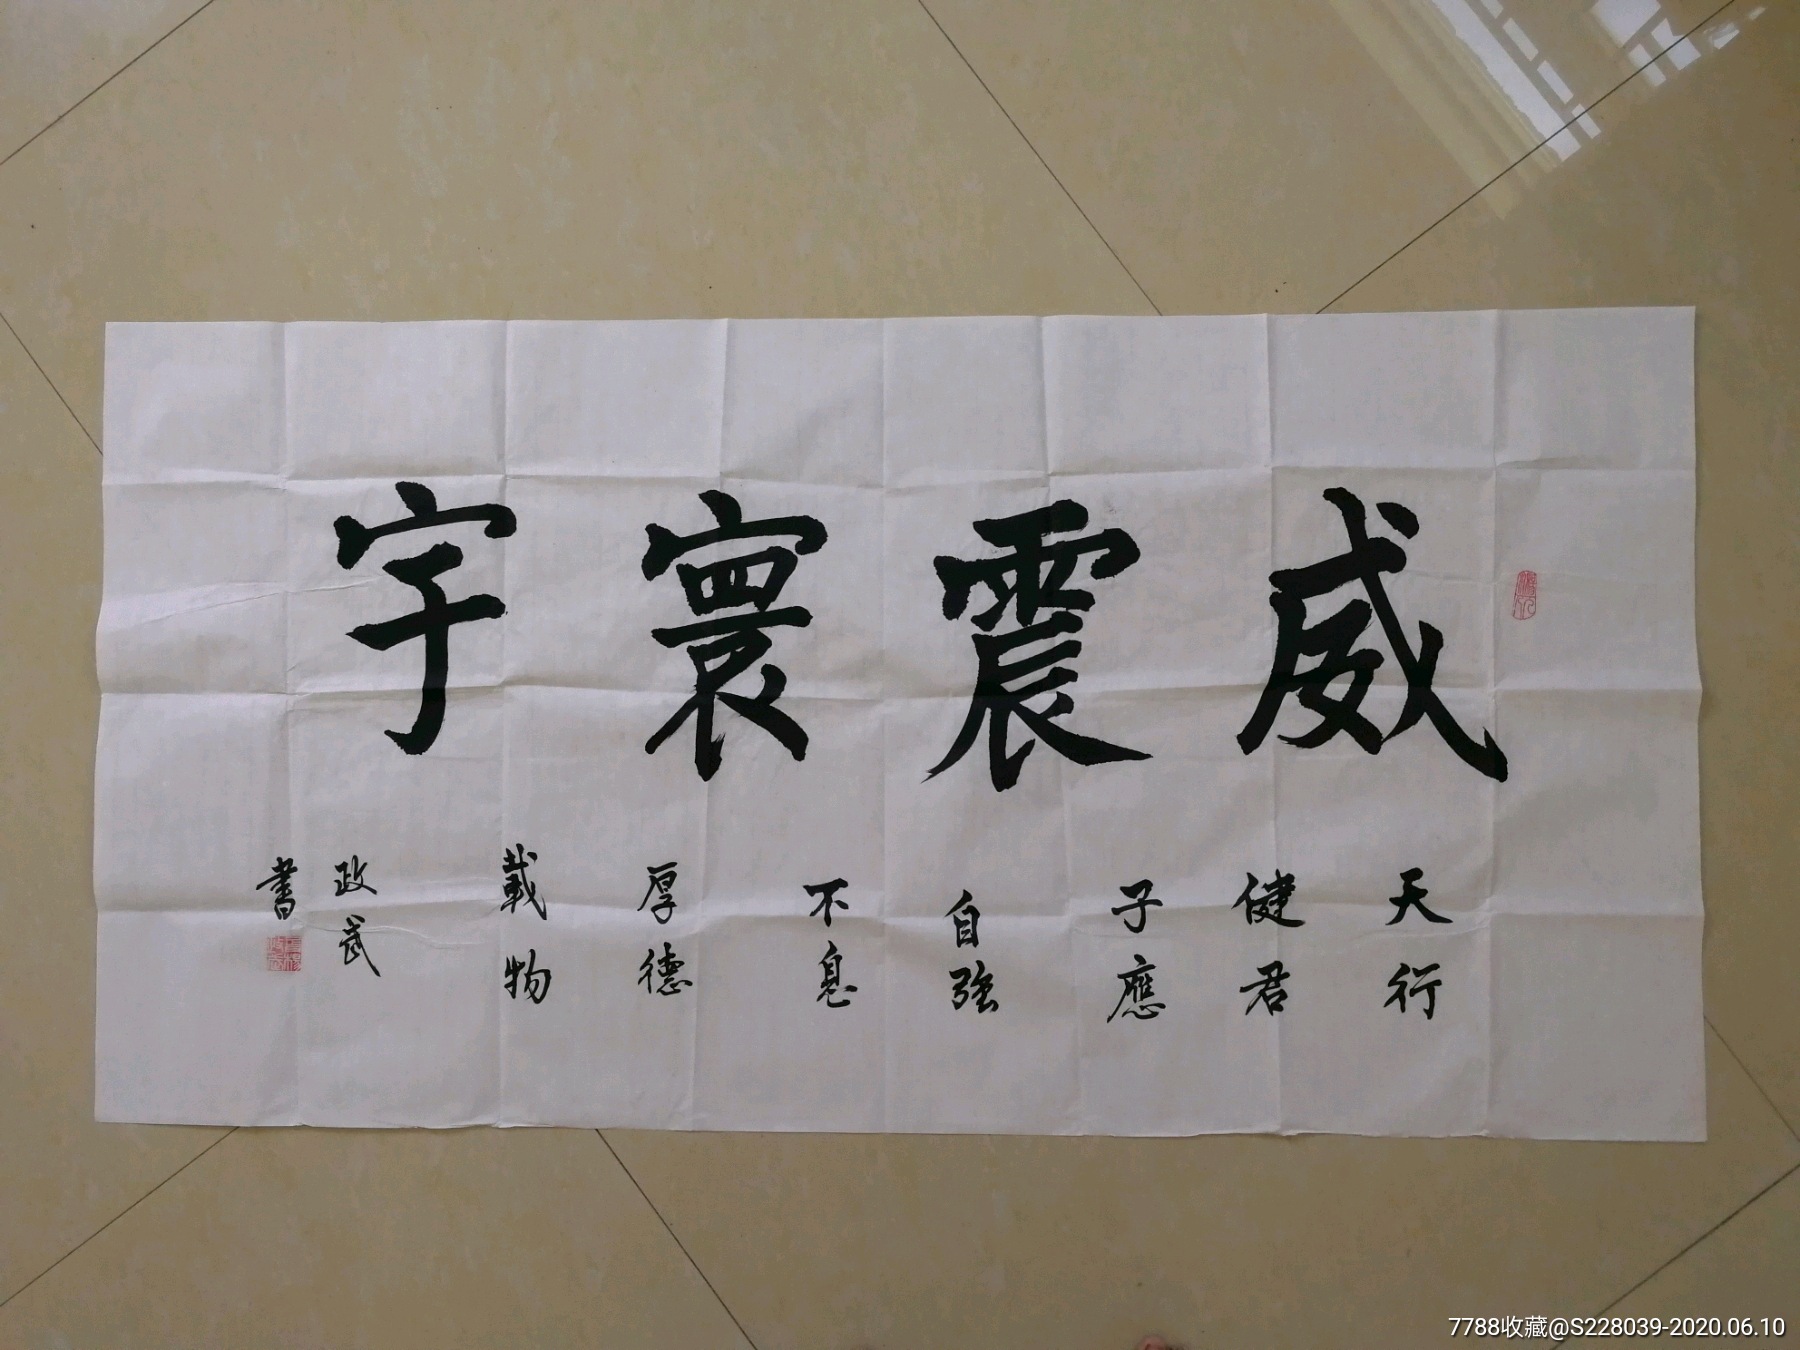 威震寰宇
天行
健君
子應
自強
不息
厚德
載物
政武
書
7788收藏@S228039-2020.06.10